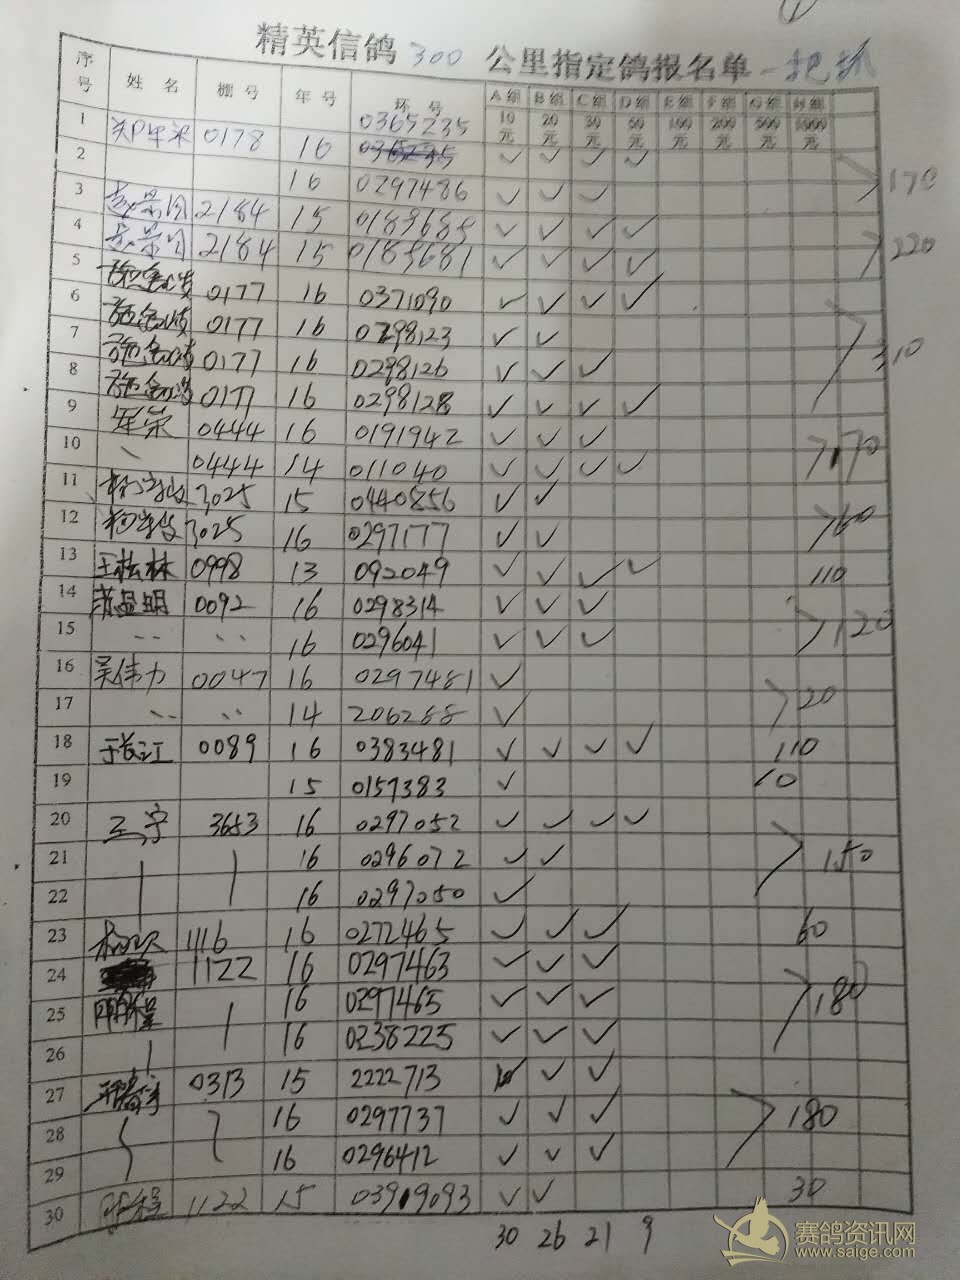 ①
精英信鸽 300 公里指定鸽报名单 一把抓
序号 姓名 棚号 年号 环号 A组 B组 C组 D组 E组 F组 G组 H组
10元 20元 30元 50元 100元 200元 500元 1000元
1 0178 16 0365235 ✓ ✓ ✓ ✓
2 16 0297486 ✓ ✓ ✓ 170
3 2184 15 0183685 ✓ ✓ ✓ ✓
4 2184 15 0183681 ✓ ✓ ✓ ✓ 220
5 0177 16 0371090 ✓ ✓ ✓ ✓
6 0177 16 0298123 ✓ ✓
7 0177 16 0298126 ✓ ✓ ✓ 310
8 0177 16 0298128 ✓ ✓ ✓ ✓
9 0444 16 0191942 ✓ ✓ ✓
10 0444 14 011040 ✓ ✓ ✓ ✓ 170
11 3025 15 0440856 ✓ ✓
12 3025 16 0297177 ✓ ✓ 60
13 王松林 0998 13 092049 ✓ ✓ ✓ ✓ 110
14 0092 16 0298314 ✓ ✓ ✓
15 16 0296041 ✓ ✓ ✓ 120
16 吴伟力 0047 16 0297481 ✓
17 14 206288 ✓ 20
18 于长江 0089 16 0383481 ✓ ✓ ✓ ✓ 110
19 15 0157383 ✓ 10
20 王宁 3653 16 0297052 ✓ ✓ ✓ ✓
21 16 0296072 ✓ ✓ 150
22 16 0297050 ✓
23 1116 16 0272465 ✓ ✓ ✓ 60
24 1122 16 0297463 ✓ ✓ ✓
25 16 0297465 ✓ ✓ ✓ 180
26 16 0238225 ✓ ✓ ✓
27 0313 15 2222713 ✓ ✓ ✓
28 16 0297737 ✓ ✓ ✓ 180
29 16 0296412 ✓ ✓ ✓
30 1122 15 03909093 ✓ ✓ 30
30 26 21 9
赛鸽资讯网
www.saige.com